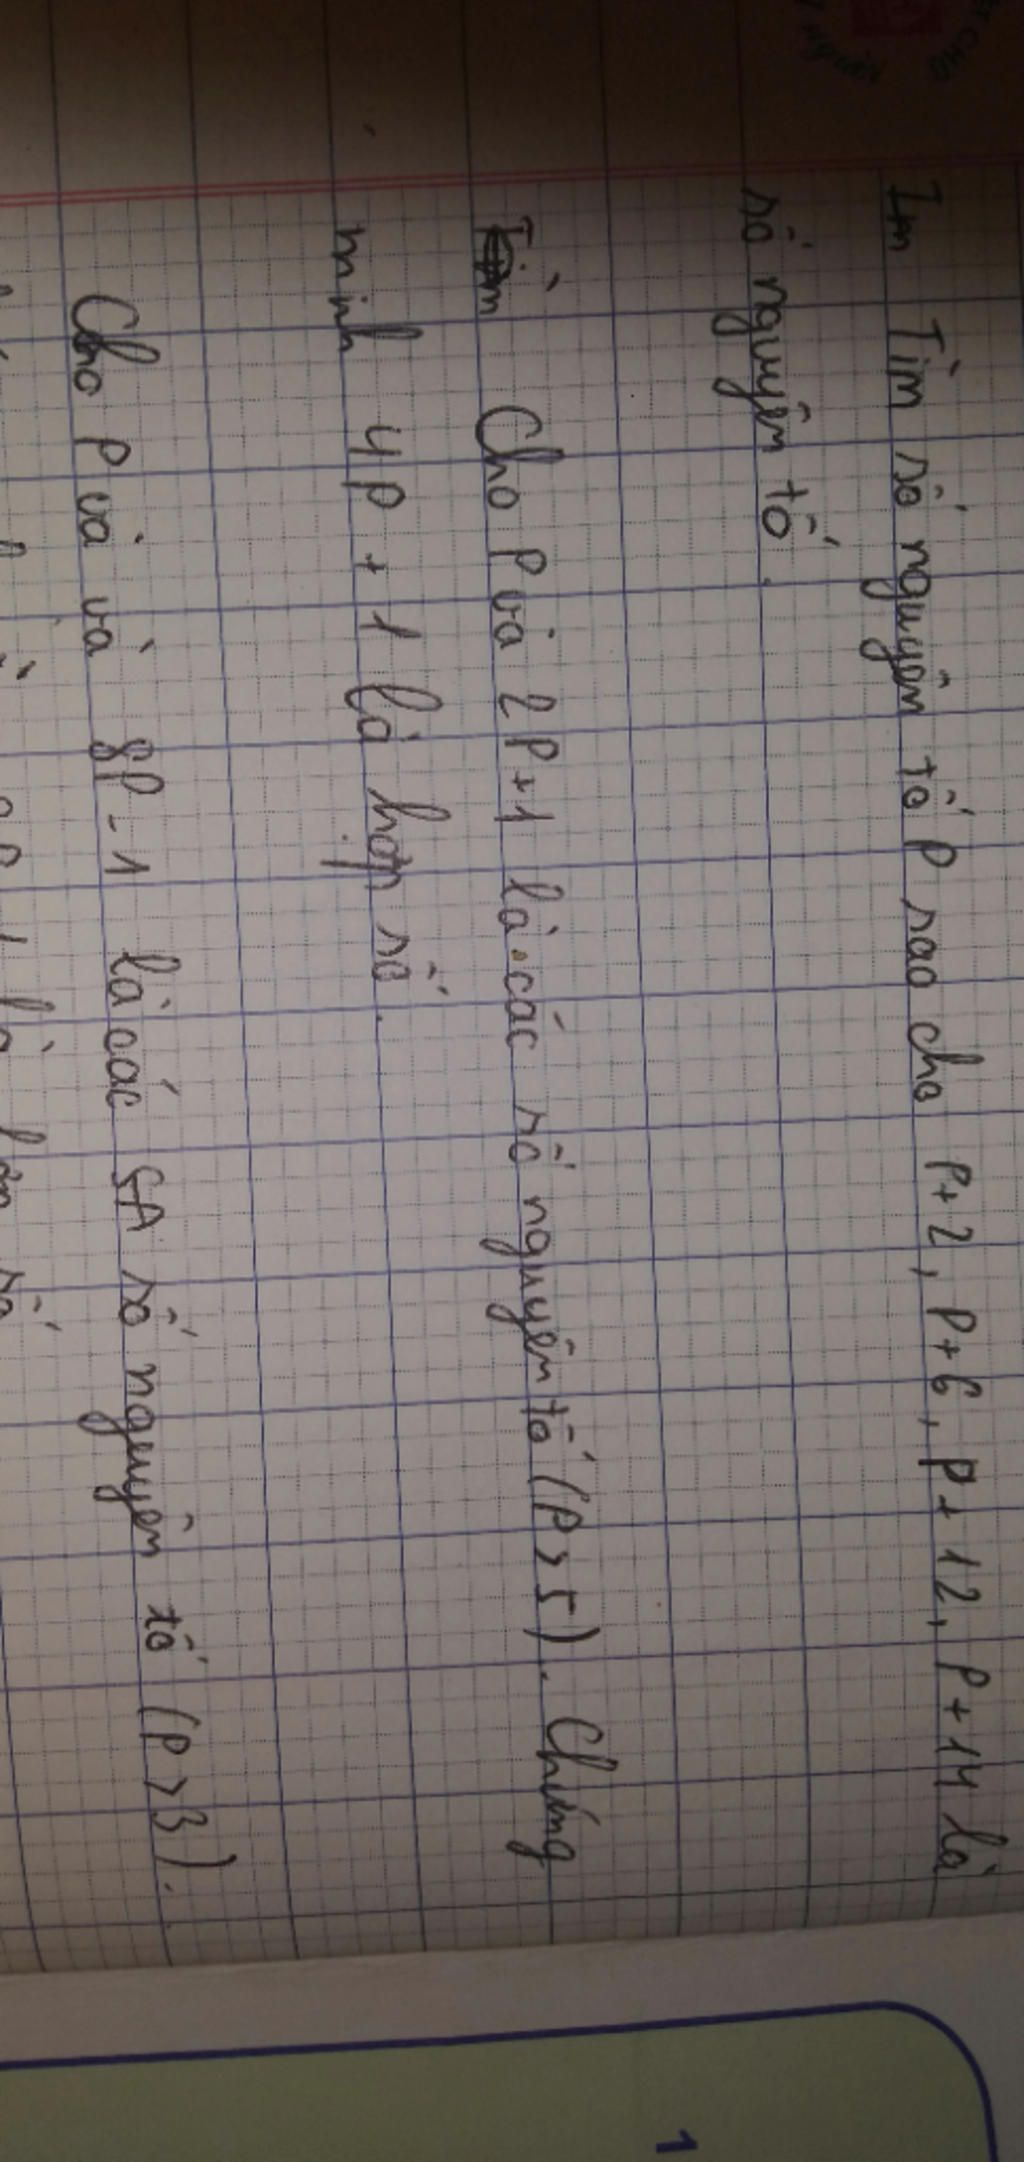 Tìm số nguyên tố p sao cho p+2, p+6, p+12, p+14 là
số nguyên tố.
Cho p và 2p+1 là các số nguyên tố (p > 5). Chứng
minh 4p + 1 là hợp số.
Cho p và và 8p - 1 là các số nguyên tố (p > 3).
1